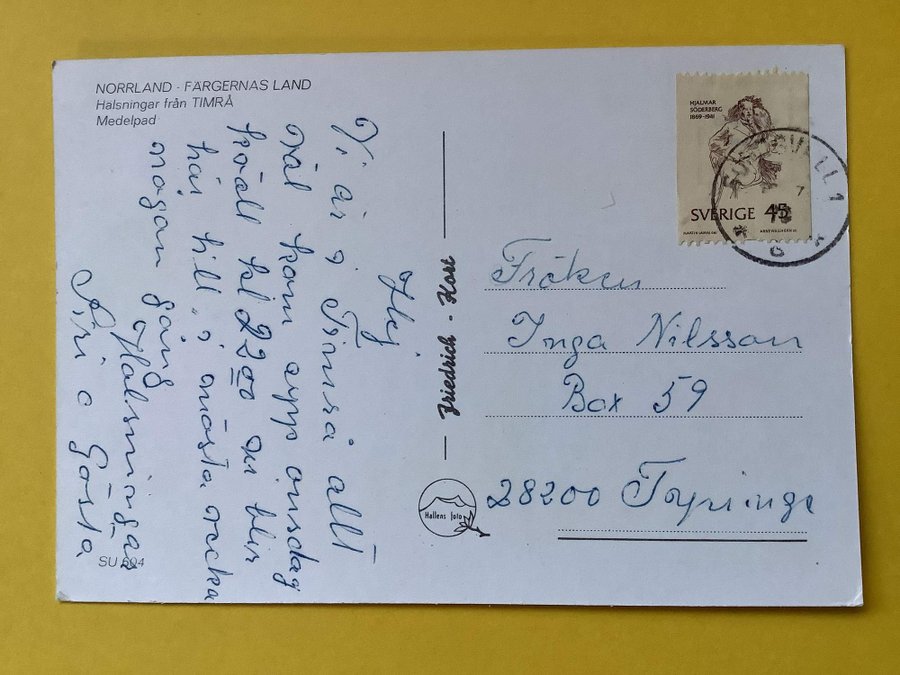 NORRLAND - FÄRGERNAS LAND
Hälsningar från TIMRÅ
Medelpad
Hej
Vi är i Timrå allt
väl kom upp onsdag
kväll kl 22 00 vi blir
här till i nästa vecka
någon gång
Hälsningar
Siri o Gösta
SU 604
Friedrich - Kort
Hallens foto
HJALMAR
SÖDERBERG
1869-1941
SVERIGE 45
SUNDSVALL 1
Fröken
Inga Nilsson
Box 59
28200 Tyringe